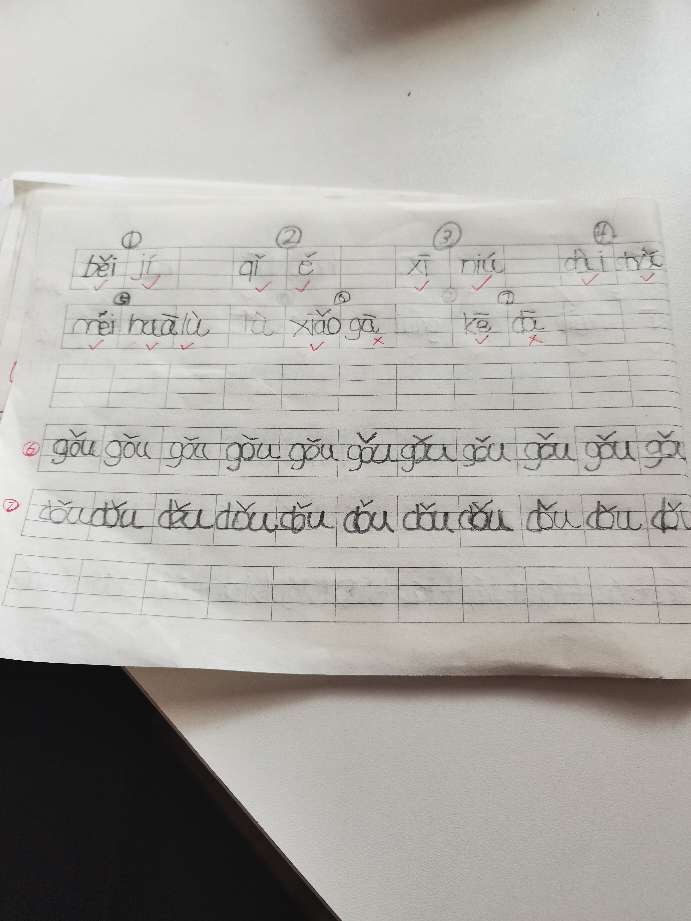 ① ② ③ ④
běi jí qǐ é xī niú
⑤ ⑥ ⑦
méi huā lù xiǎo gā kē dā
⑥ gǒu gǒu gǒu gǒu gǒu gǒu gǒu gǒu gǒu gǒu
⑦ dǒu dǒu dǒu dǒu dǒu dǒu dǒu dǒu dǒu dǒu